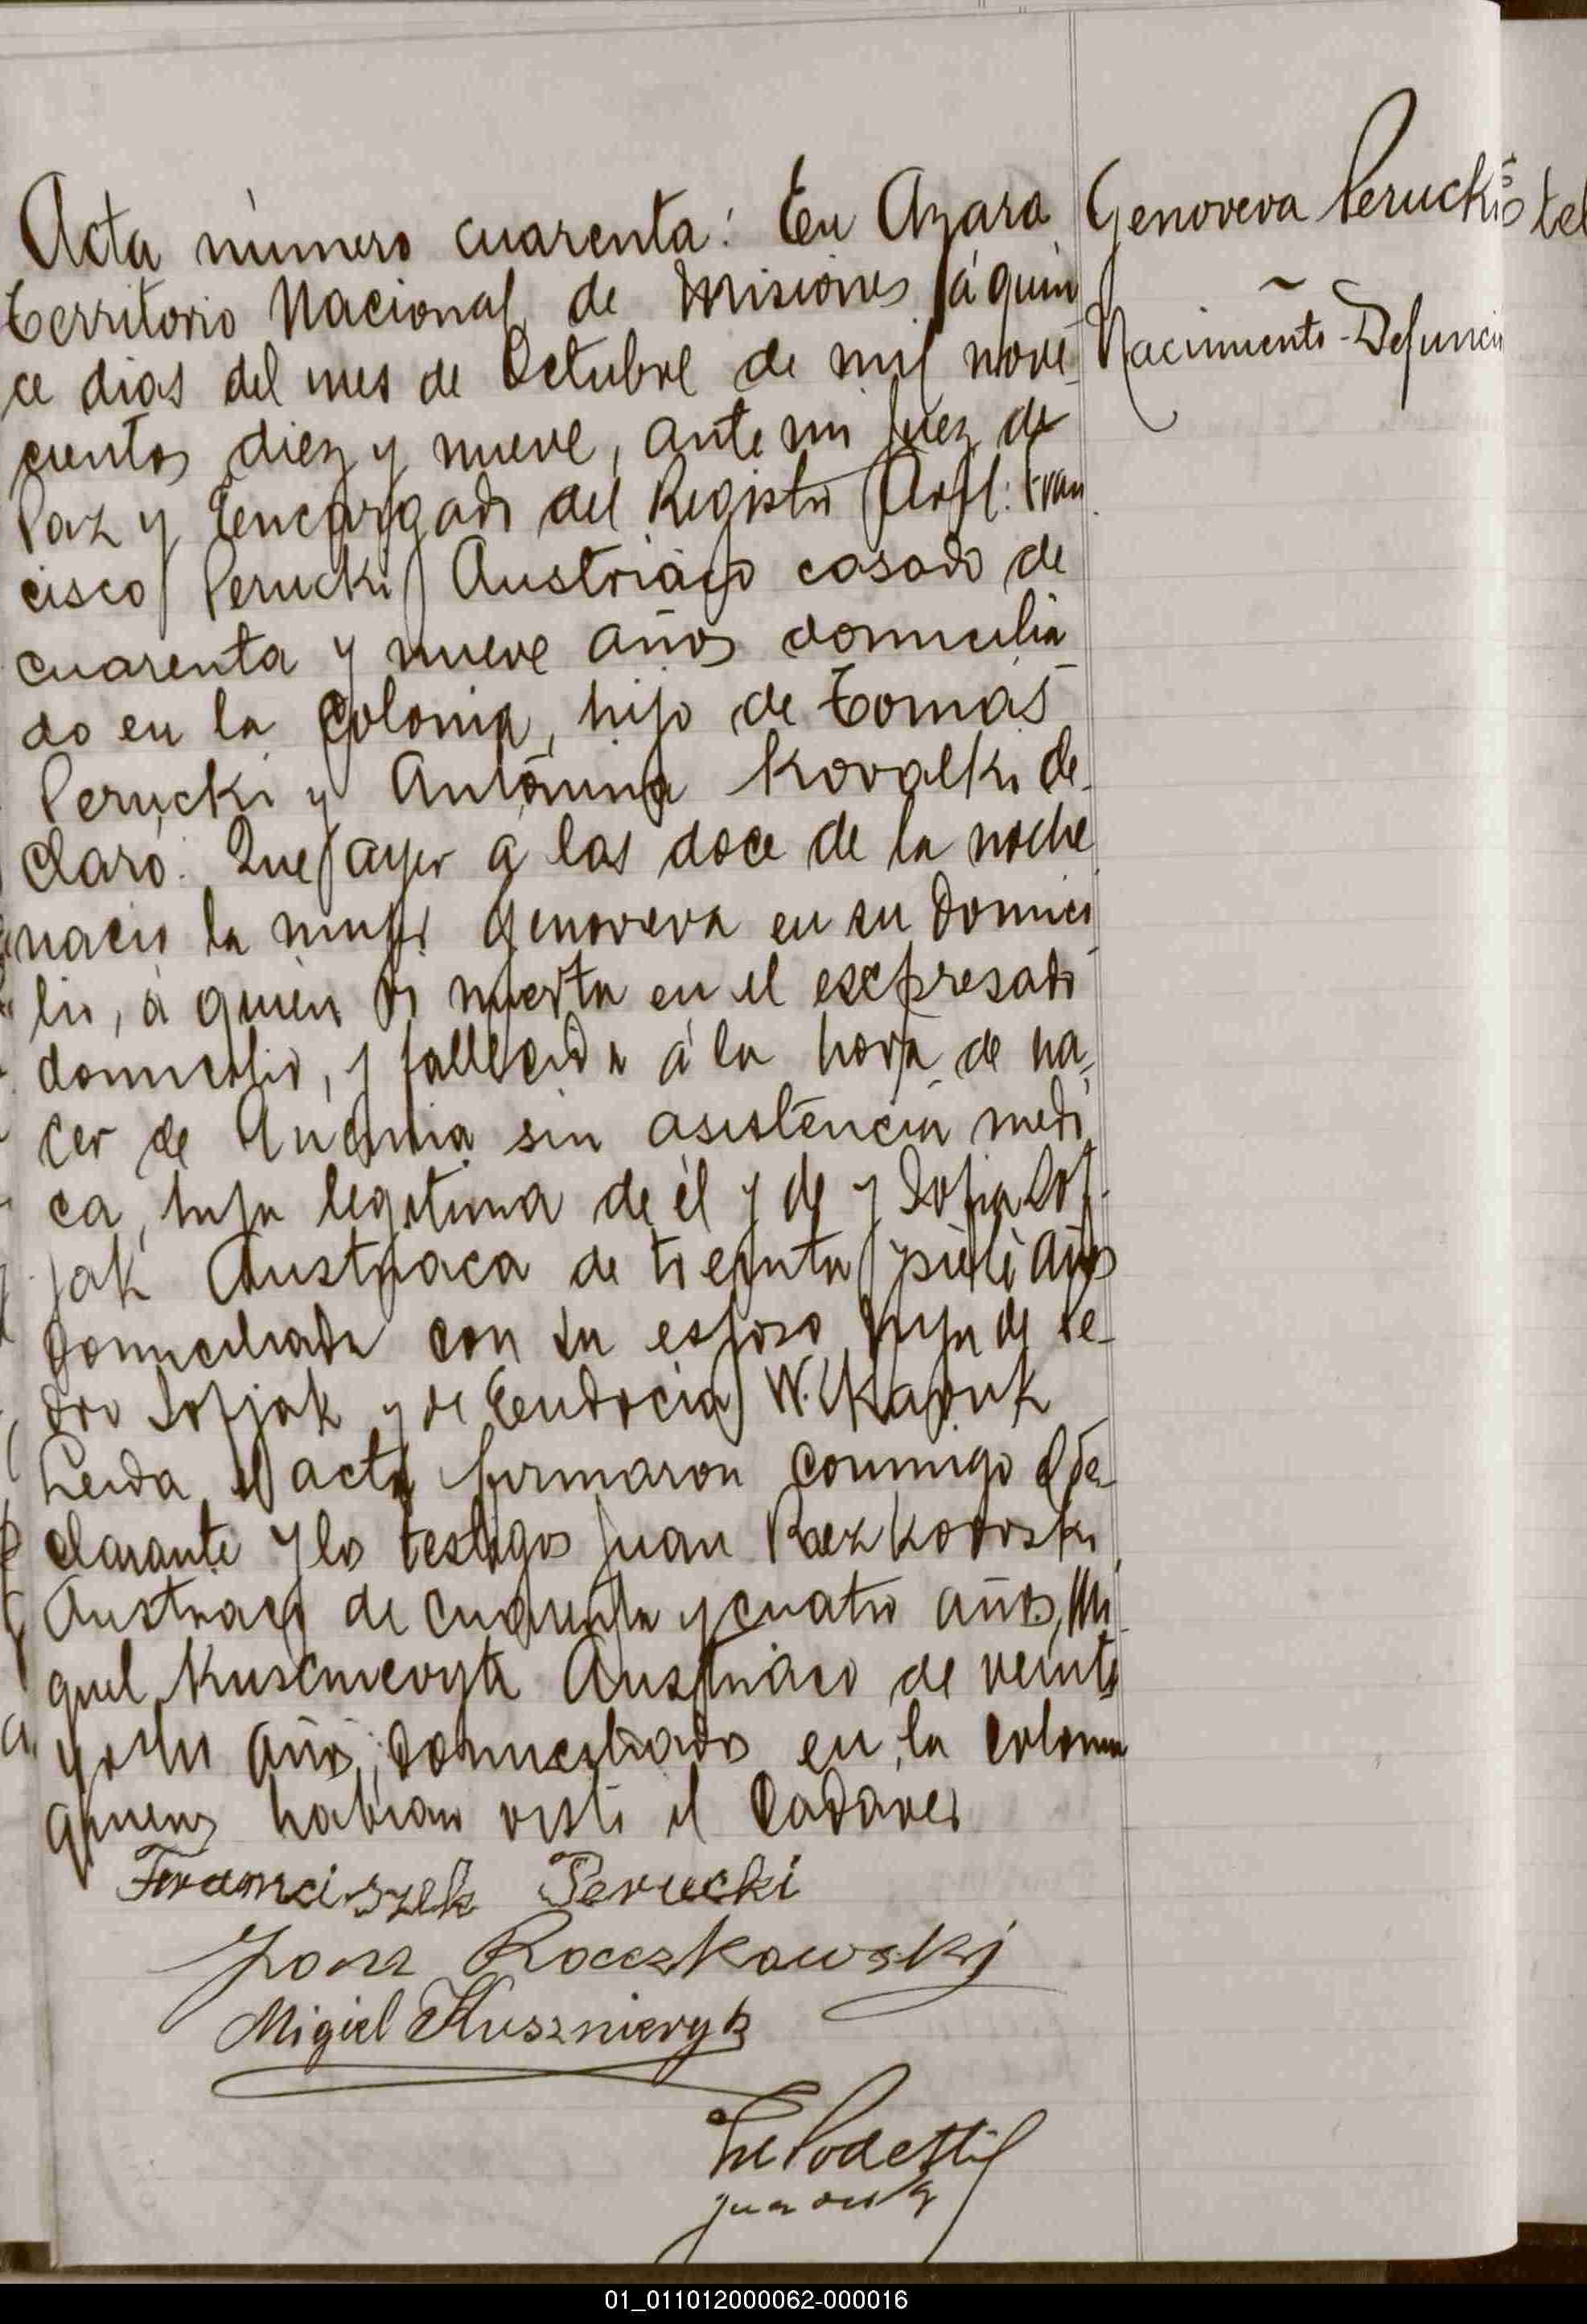 Acta número cuarenta: En Azara
territorio Nacional de Misiones á quin
ce dias del mes de Octubre de mil nove
cientos diez y nueve, ante mi Juez de
Paz y Encargado del Registro Civil: Fran
cisco Perucki Austriaco casado de
cuarenta y nueve años domicilia
do en la Colonia, hijo de Tomás
Perucki y Antonina Kovalki de-
claró: Que ayer á las doce de la noche
nacio la mujer Genoveva en su domici
lio, á quien vi muerta en el expresado
domicilio, y fallecida á la hora de na
cer de Anemia sin asistencia medi
ca, hija legitima de él y de y Sofia Sof
jak Austriaca de treinta y siete años
domiciliada con su esposo hija de Pe-
dro Sofjak y de Eudocia
Leida el acta firmaron conmigo el de-
clarante y los testigos Juan Roezkovoski
Austriaco de cuarenta y cuatro años, Mi
guel Austriaco de veinte
y ocho años, domiciliados en la colonia
quienes habian visto el Cadaver
Franciszek Perucki
Roczkowski
Migiel Kusznieryk
Genoveva Perucki
Nacimiento-Defunció
01_011012000062-000016